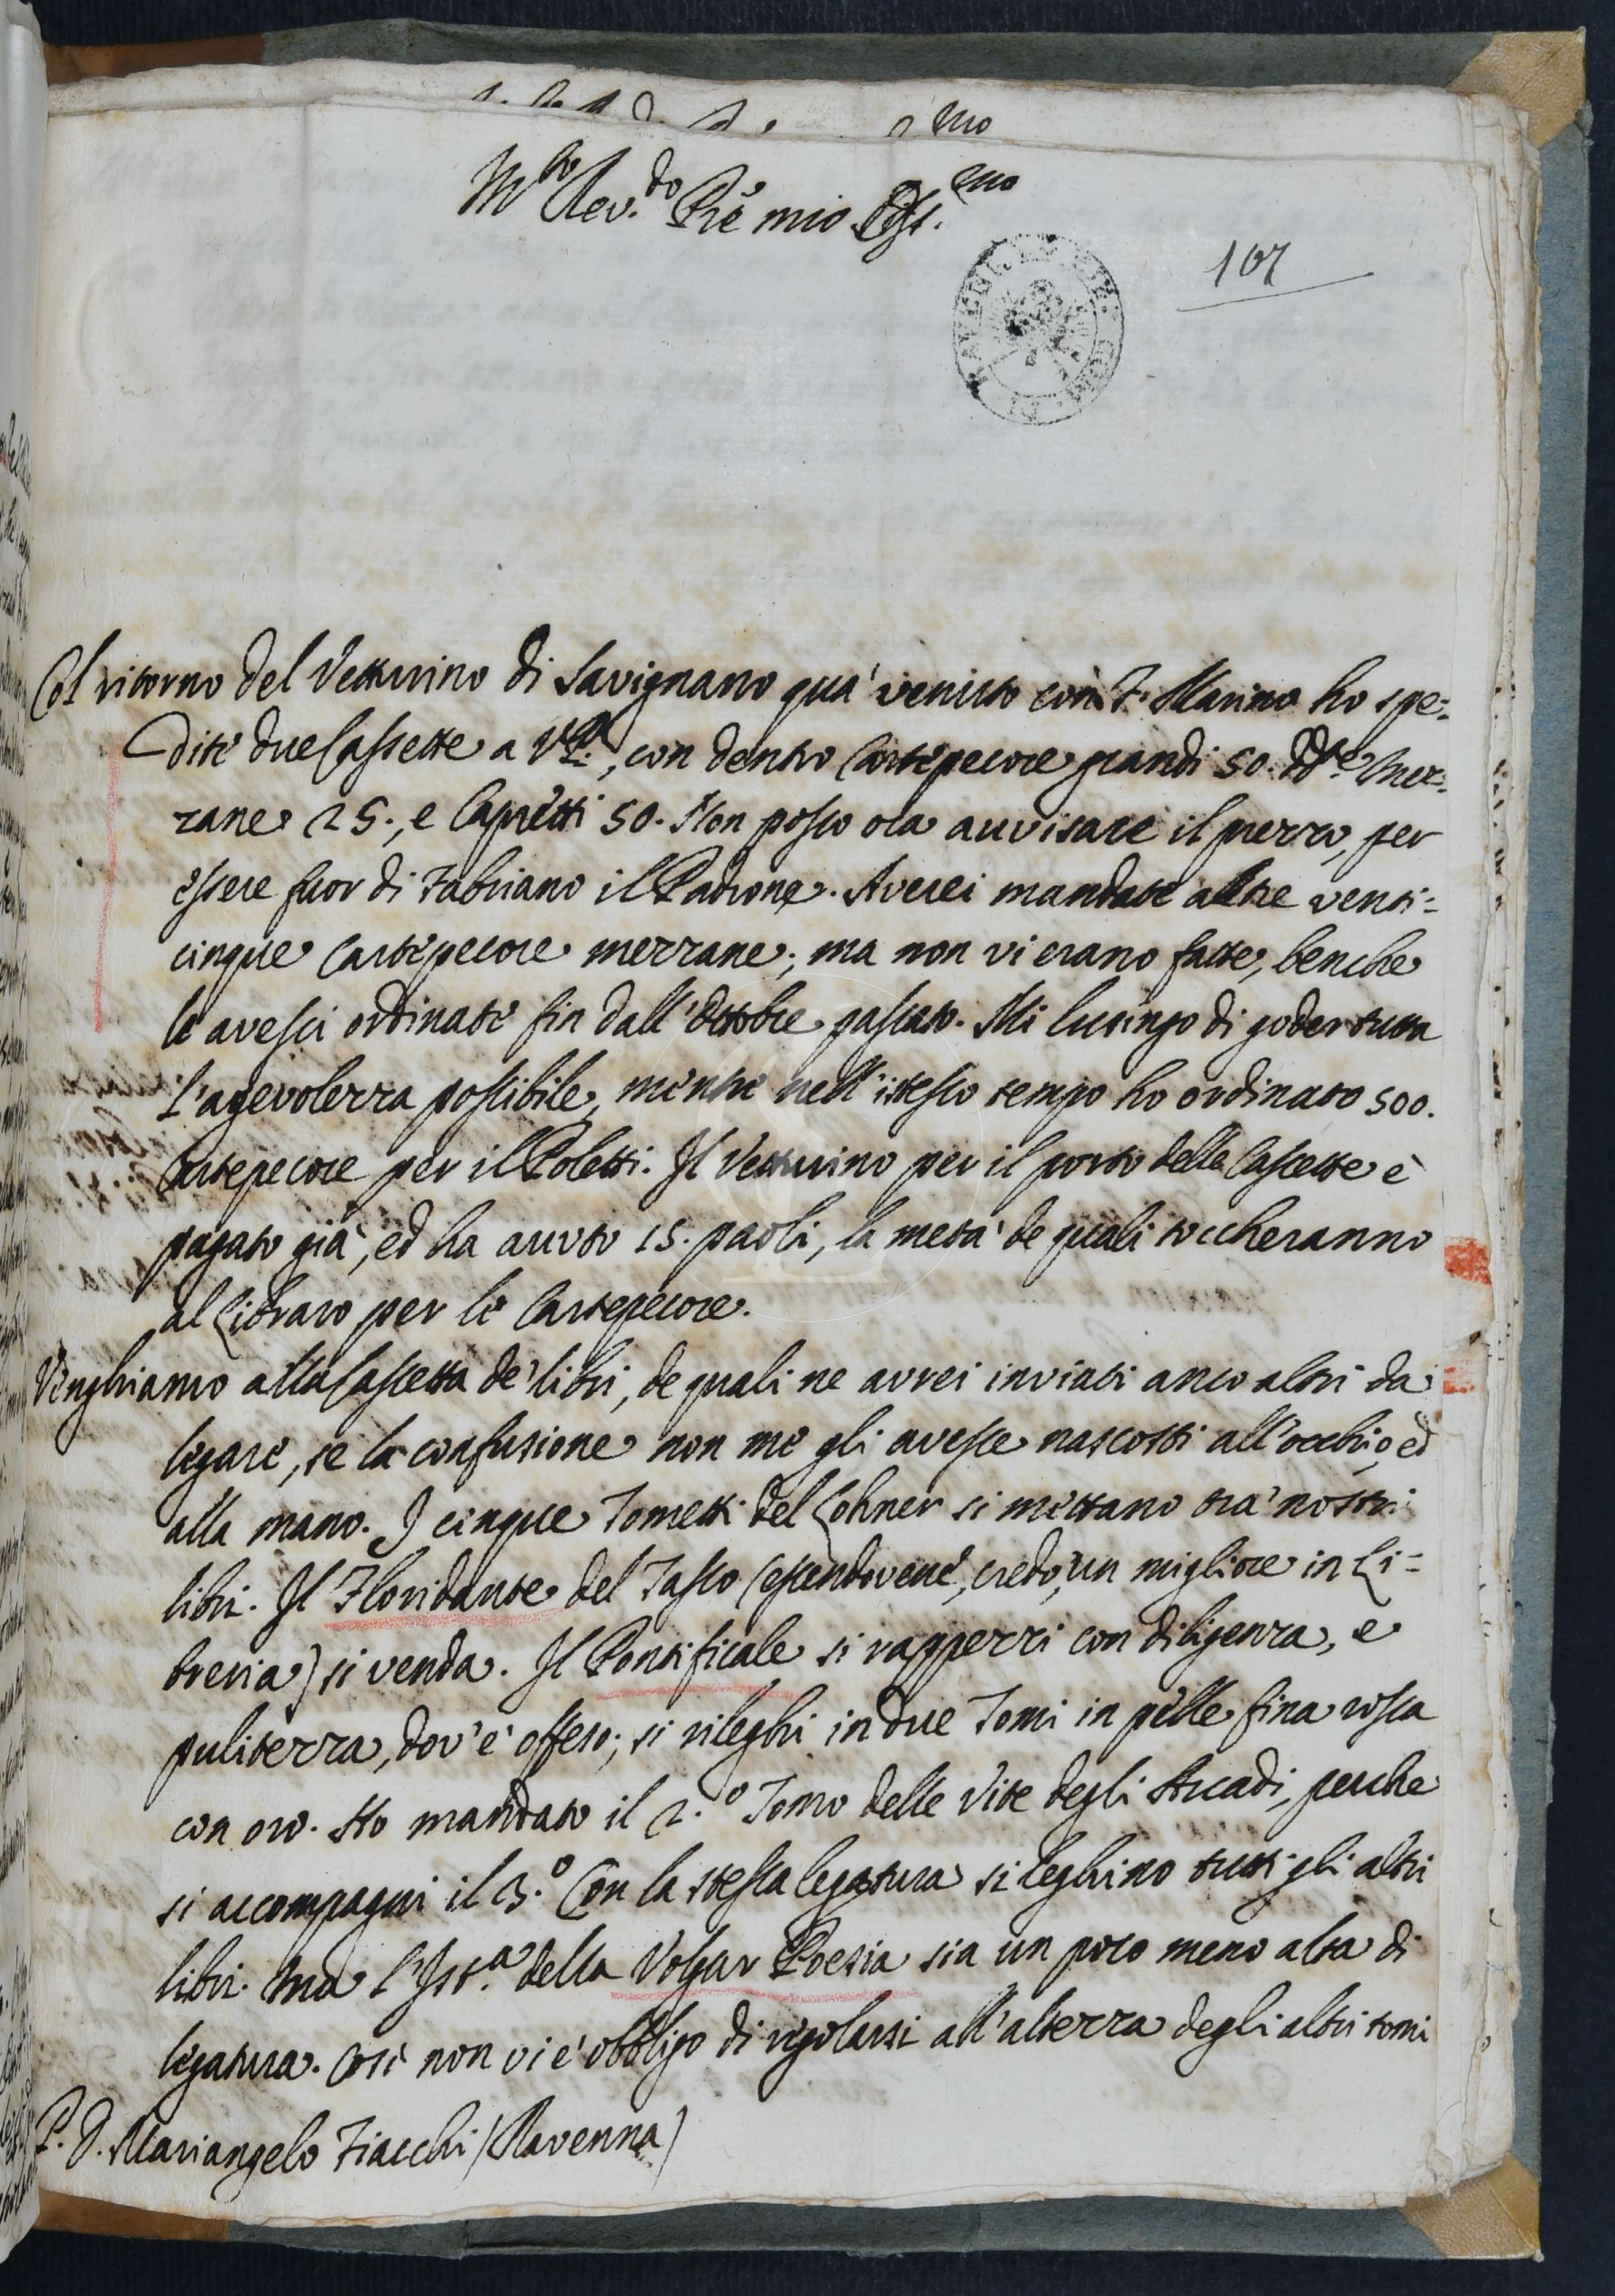 M.to Rev.do Pre mio Oss.mo
107
Col ritorno del Vetturino di Savignano quà venuto con F. Marino ho spe=
dite due Cassette a V.P., con dentro Cartepecore grandi 50. Dte Mez=
zane 25., e Capretti 50. Non posso ora avvisare il prezzo, per
essere fuor di Fabriano il Padrone. Averei mandate altre venti=
cinque Cartepecore mezzane; ma non vi erano fatte, benche
le avessi ordinate fin dall'Ottobre passato. Mi lusingo di goder tutta
l'agevolezza possibile, mentre nell'istesso tempo ho ordinato 500.
Cartepecore per il Poletti. Il Vetturino per il porto delle Cassette è
pagato già, ed ha avuto 15. paoli, la metà de quali toccheranno
al Libraro per le Cartepecore.
Venghiamo alla Cassetta de' libri, de quali ne avrei inviati anco altri da
legare, se la confusione non me gli avesse nascosti all'occhio, ed
alla mano. I cinque Tometti del Lohner si mettano trà nostri
libri. Il Floridante del Tasso (essendovene, credo, un migliore in Li=
breria) si venda. Il Pontificale si rappezzi con diligenza, e
pulitezza, dov'è offeso; si rileghi in due Tomi in pelle fina rossa
con oro. Ho mandato il 2.o Tomo delle Vite degli Arcadi, perche
si accompagni il 3.o Con la stessa legatura si leghino tutti gli altri
libri. Ma l'Ist.a della Volgar Poesia sia un poco meno alta di
legatura. Così non vi è obbligo di regolarsi all'altezza degli altri tomi
P. D. Mariangelo Fiacchi (Ravenna)